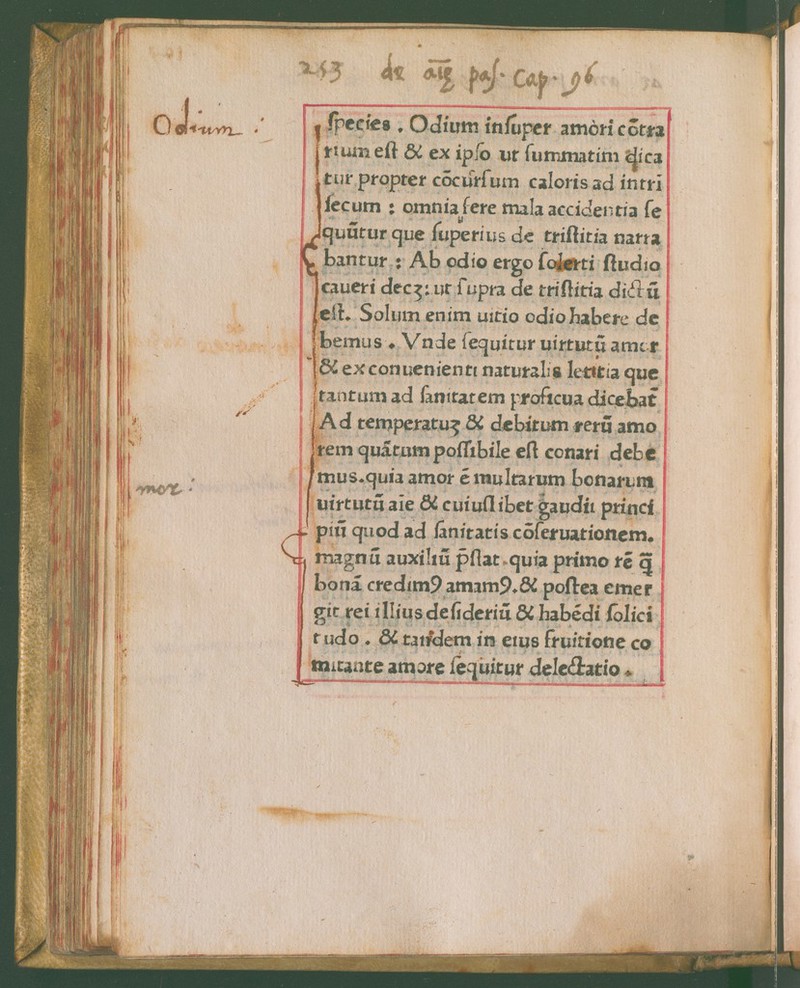 253 de aīg paſ. Cap. 96
Odium
ſpecies . Odium inſuper amori cõtra
rium eſt & ex ipſo ut ſummatim dica
tur propter cõcúrſum caloris ad intri
ſecum : omnia fere mala accidentia ſe
quũtur que ſuperius de triſtitia narra
bantur : Ab odio ergo ſolerti ſtudio
caueri decꝫ: ut ſupra de triſtitia dictũ
eſt. Solum enim uitio odio habere de
bemus . Vnde ſequitur uirtutũ amor
& ex conuenienti naturalis letitia que
tantum ad ſanitatem proficua dicebat̃
Ad temperatuꝫ & debitum rerũ amo
rem quátum poſſibile eſt conari debe
mus. quia amor é multarum bonarum
mor
uirtutũ aīe & cuiuſlibet gaudii princi
piũ quod ad ſanitatis cõſeruationem.
magnũ auxiliũ p̃ſtat. quia primo ré q̃
boná credimꝰ amamꝰ. & poſtea emer
git rei illius deſideriũ & habédi ſolici
tudo . & tandem in eius fruitione co
mitante amore ſequitur delectatio .